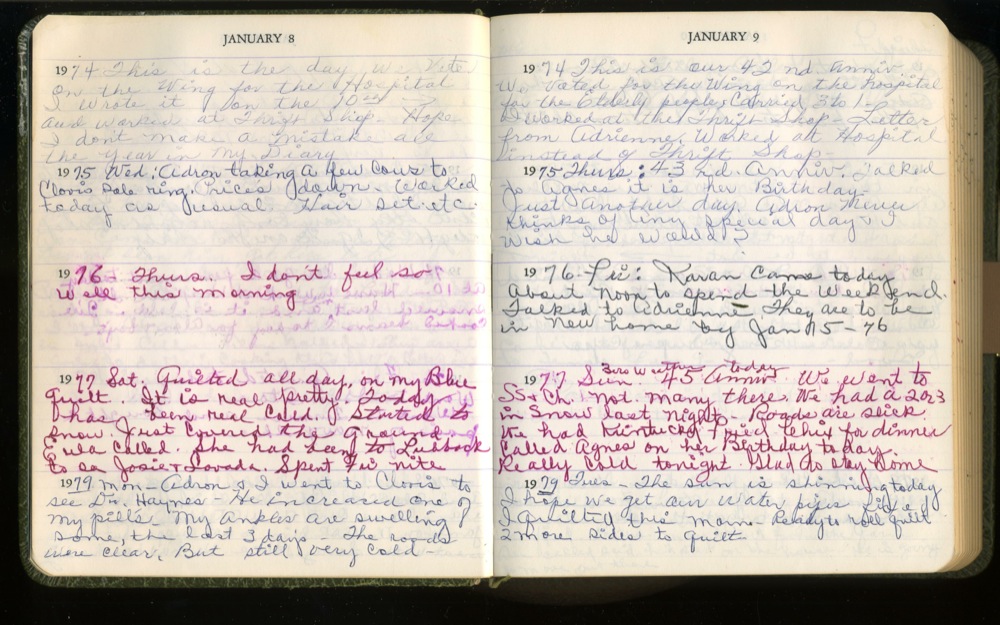 JANUARY 8
1974 This is the day we vote
on the Wing for the Hospital
I wrote it on the 10th
and worked at Thrift Shop. Hope
I don't make a mistake all
the year in my Diary
1975 Wed: Adron taking a few cows to
Clovis Sale ring. Prices down. Worked
today as usual. Hair set etc.
1976 Thurs. I don't feel so
well this morning
1977 Sat. Quilted all day, on my Blue
Quilt. It is real pretty. Today
has been real cold. Started to
snow. Just covered the ground
Eula called. She had been to Lubbock
to see Josie + Lovada. Spent Fri nite
1979 Mon - Adron & I went to Clovis to
see Dr. Haynes - He increased one of
my pills. My ankles are swelling
some, the last 3 days. The roads
were clear, But still very cold -
JANUARY 9
1974 This is our 42nd Anniv
We voted for the Wing on the hospital
for the Elderly people, Carried, 3 to 1 -
I worked at the Thrift Shop - Letter
from Adrienne. Worked at Hospital
instead of Thrift Shop -
1975 Thurs: 43rd. Anniv. Talked
to Agnes it is her Birthday
Just another day. Adron never
thinks of any special day & I
wish he would?
1976 - Fri: Karan Came today
about noon to spend the weekend.
Talked to Adrienne They are to be
in New home by Jan 15 - 76
Zero Weather today
1977 Sun. 45 Anniv. We went to
SS + Ch. Not many there. We had a 2 or 3
in Snow last night - Roads are slick.
We had Kintucky Fried Chix for dinner
Called Agnes on her Birthday today.
Really Cold tonight. Glad to stay Home
1979 Tues - The sun is shinning today
I hope we get our water pipes
I Quilted this morn. Ready to roll quilt
2 more sides to quilt